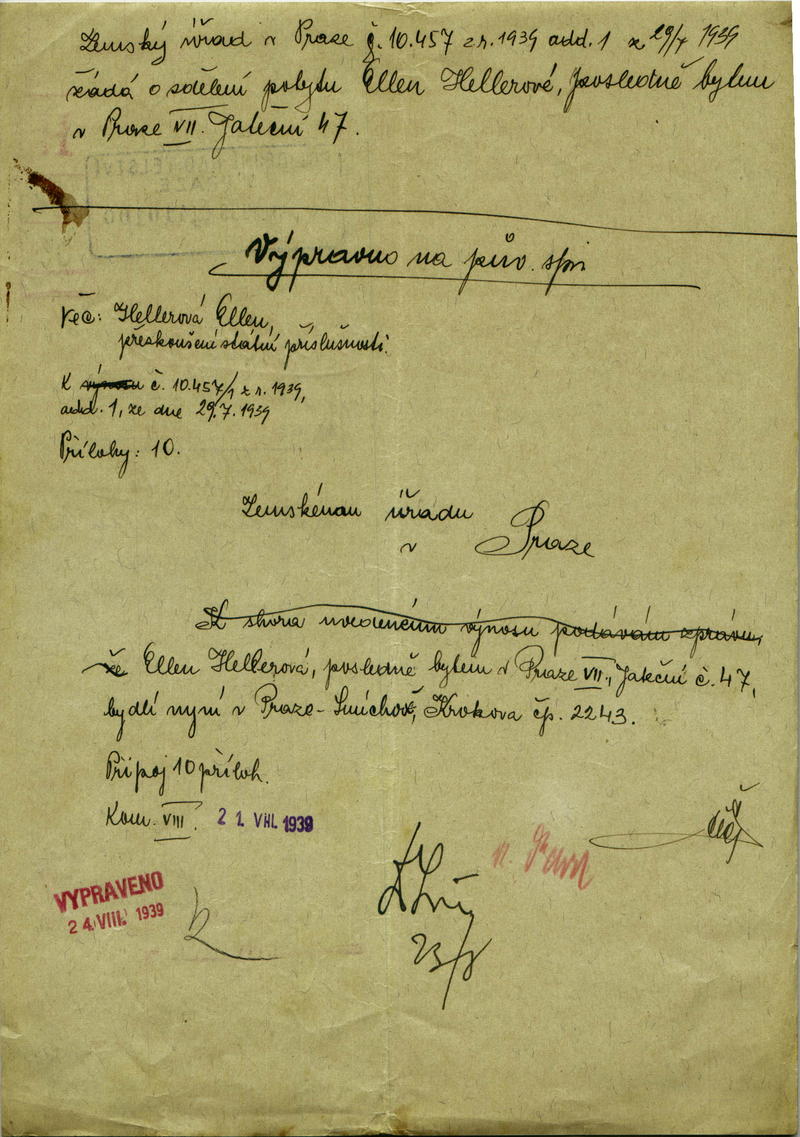 Zemský úřad v Praze č. 10.457 z r. 1939 add. 1 z 29/7 1939
žádá o sdělení pobytu Ellen Hellerové, posledně bytem
v Praze VII. Jateční 47.
Výpravno na pův. spis
Věc: Hellerová Ellen,
přezkoušení státní příslušnosti.
K výnosu č. 10.457/1 z r. 1939,
add. 1, ze dne 29.7.1939
Přílohy: 10.
Zemskému úřadu
v Praze
K shora uvedenému výnosu podávám zprávu,
že Ellen Hellerová, posledně bytem v Praze VII., Jateční č. 47,
bydlí nyní v Praze-Smíchově, Krokova čp. 2243.
Připoj 10 příloh.
Kom. VIII. 21. VIII. 1939
VYPRAVENO
24. VIII. 1939
23/8